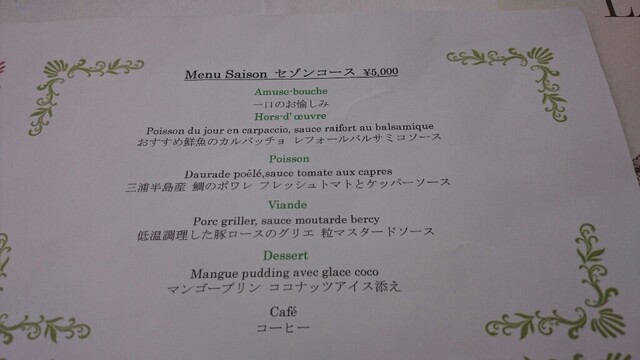 Menu Saison セゾンコース ¥5,000
Amuse-bouche
一口のお愉しみ
Hors-d'œuvre
Poisson du jour en carpaccio, sauce raifort au balsamique
おすすめ鮮魚のカルパッチョ レフォールバルサミコソース
Poisson
Daurade poêlé,sauce tomate aux capres
三浦半島産 鯛のポワレ フレッシュトマトとケッパーソース
Viande
Porc griller, sauce moutarde bercy
低温調理した豚ロースのグリエ 粒マスタードソース
Dessert
Mangue pudding avec glace coco
マンゴープリン ココナッツアイス添え
Café
コーヒー